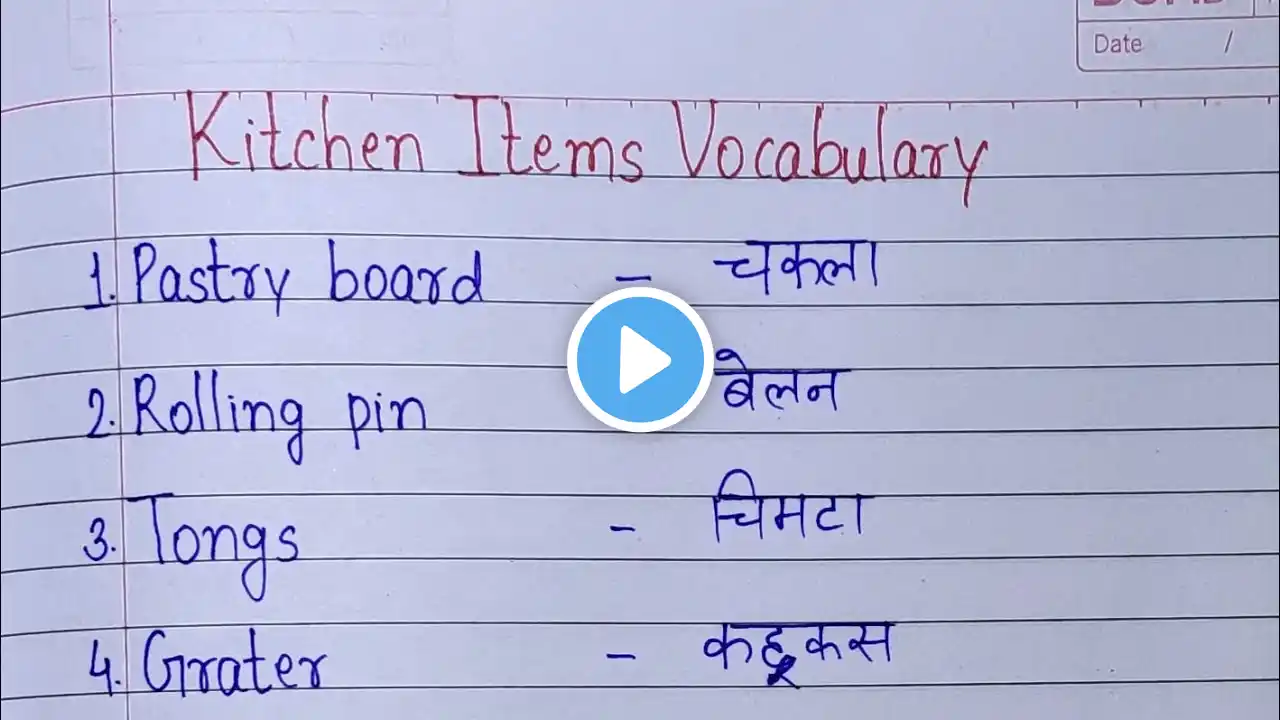 Date /
Kitchen Items Vocabulary
1. Pastry board - चकला
2. Rolling pin बेलन
3. Tongs - चिमटा
4. Grater - कद्दूकस